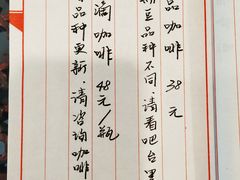 品咖啡 38元
豆品种不同,请看吧台里
滴咖啡 48元/瓶
品种更新,请咨询咖啡